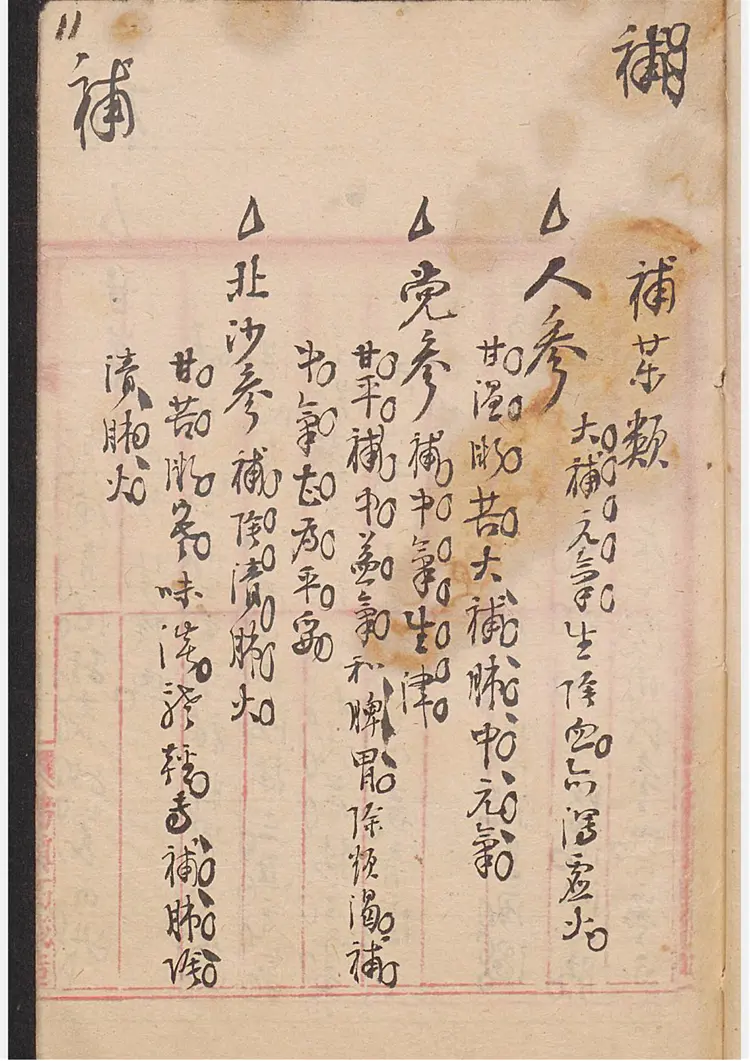 補
11
補
補藥類
人參 大補元氣生陰血亦瀉虛火
甘溫微苦大補肺中元氣
党參 補中氣生津
甘平補中益氣和脾胃除煩渴補
中氣甚為平妥
北沙參 補陰清肺火
甘苦微寒味淡體輕專補肺陰
清肺火